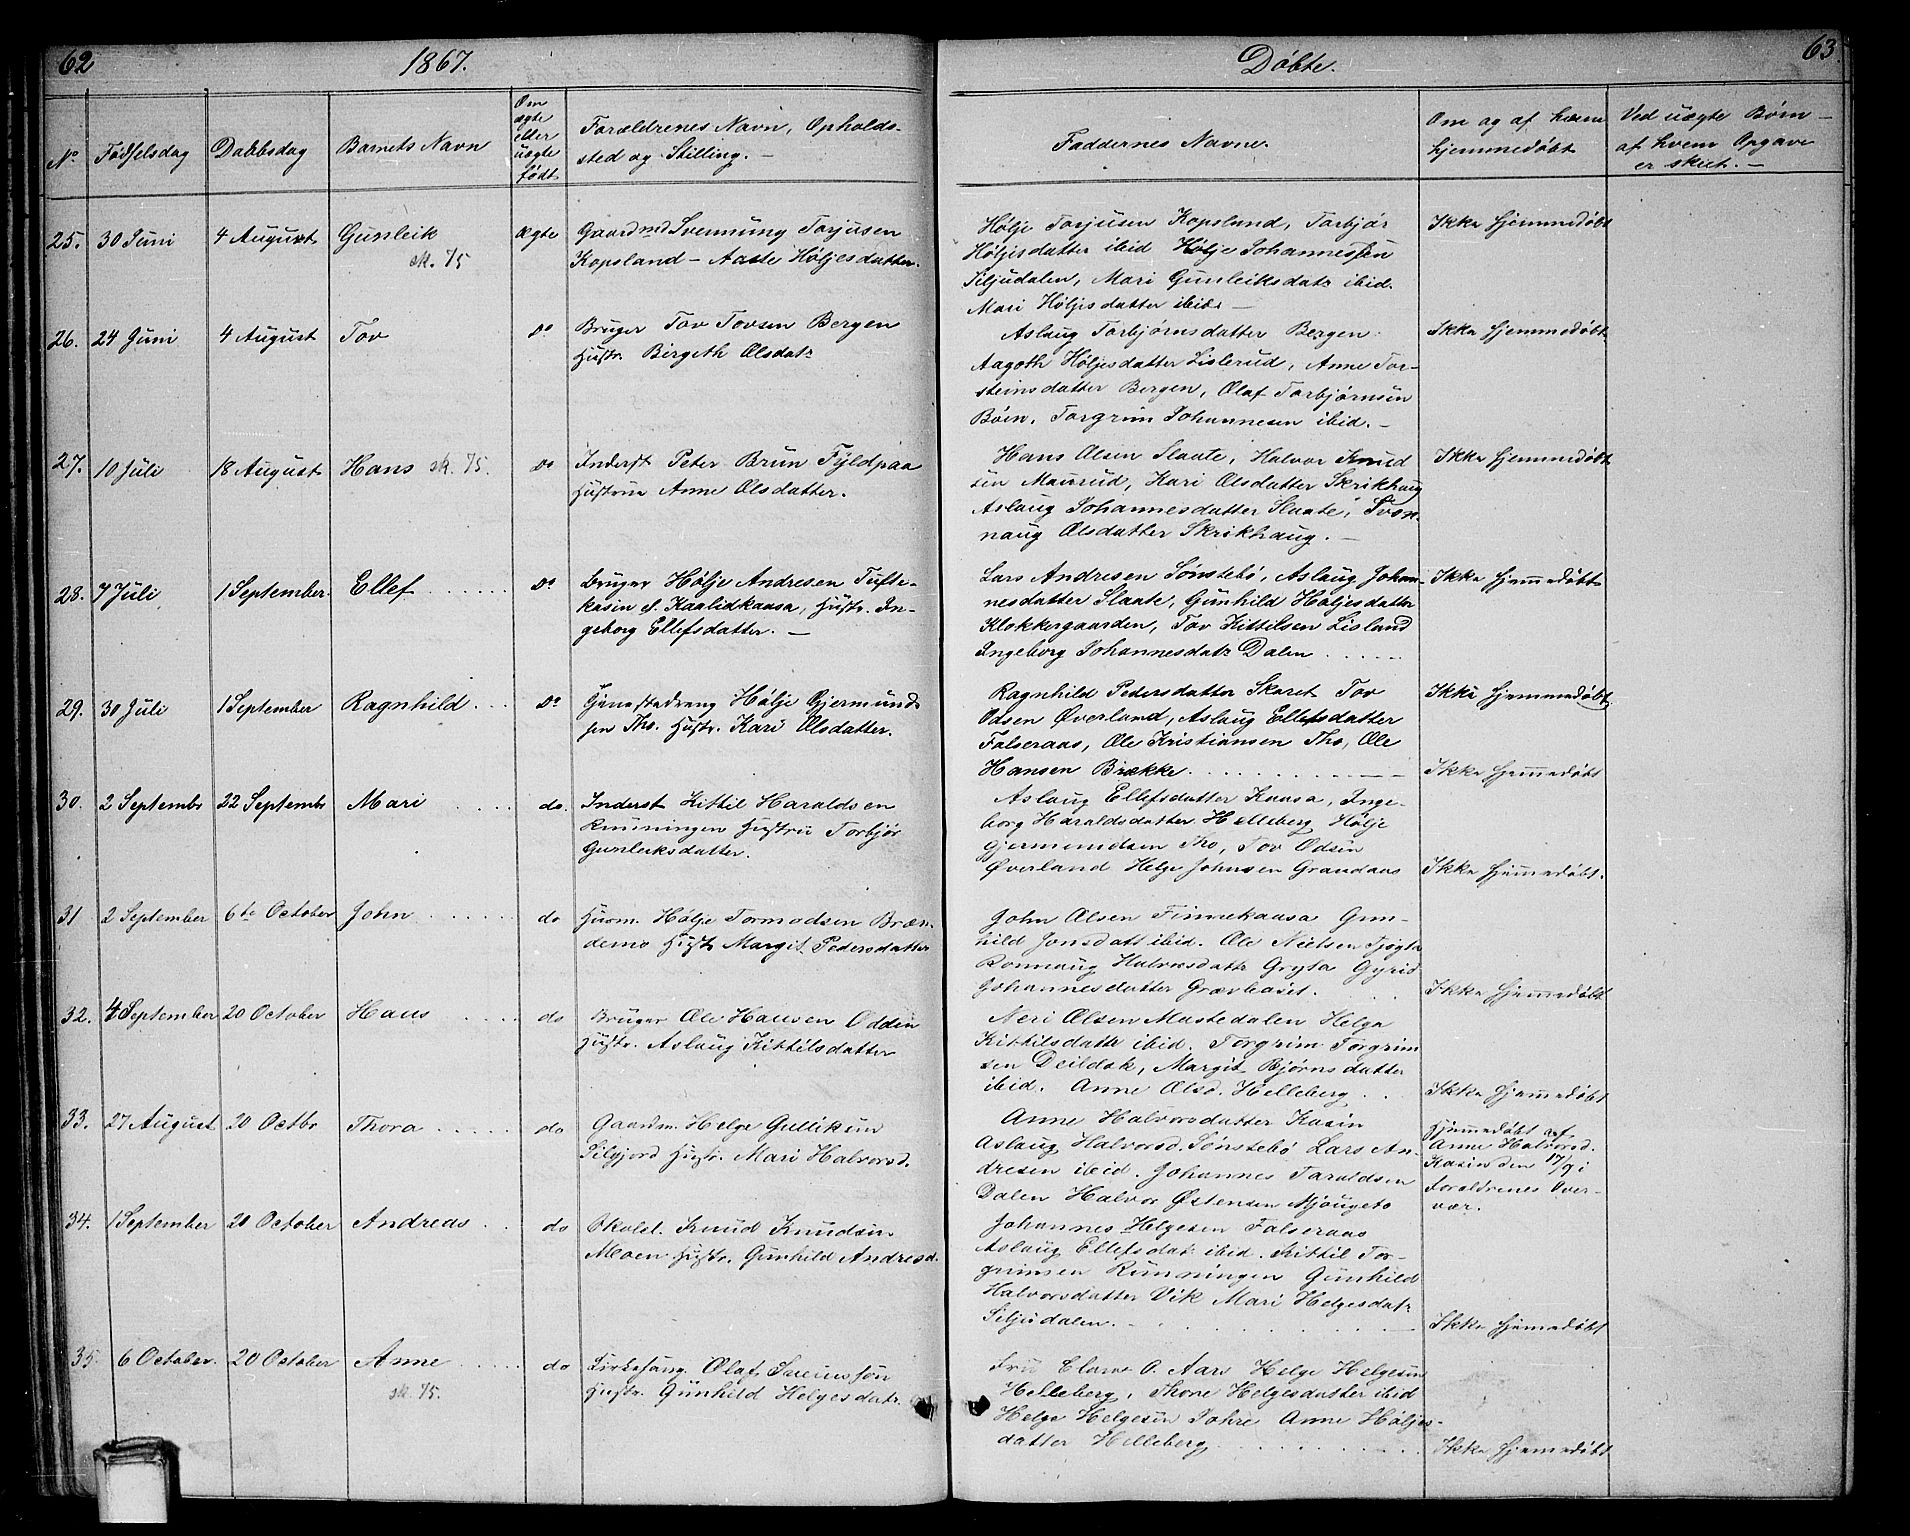 62
1867.
Døbte.
63
No
Fødselsdag
Daabsdag
Barnets Navn
Om ægte eller uægte født
Forældrenes Navn, Opholds-
sted og Stilling. —
Faddernes Navne.
Om og af hvem
hjemmedøbt
Ved uægte Børn —
af hvem Opgave
er skeet. —
25. 30 Juni 4 August Gunleik ægte Gaardmd Svennung Torjusen
sk. 75 Kopsland — Aaste Høljesdatter.
Hølje Torjusen Kopsland, Torbjør
Høljesdatter ibid Hølje Johannessen
Siljudalen, Mari Gunleiksdatr ibid.
Mari Høljesdatter ibid. —
Ikke hjemmedøbt
26. 24 Juni 4 August Tov do Bruger Tov Tovsen Bergen
Hustr. Birgeth Olsdatr
Aslaug Torbjørnsdatter Bergen.
Aagoth Høljesdatter Lislerud, Anne Tor-
steinsdatter Bergen, Olaf Torbjørnsen
Bøen, Torgrim Johannesen ibid. —
Ikke hjemmedøbt
27. 10 Juli 18 August Hans sk. 75. do Inderst Peter Brun Fyldpaa
Hustrue Anne Olsdatter.
Hans Olsen Slaate, Halvor Knud
sen Maurud, Kari Olsdatter Skrikhaug
Aslaug Johannesdatter Slaate,
naug Olsdatter Skrikhaug. —
Ikke hjemmedøbt
28. 7 Juli 1 September. Ellef do Bruger Hølje Andresen Tufte-
kasin e. Kaalidkaasa, Hustr. In-
geborg Ellefsdatter. —
Lars Andresen Sønstebø, Aslaug Johan-
nesdatter Slaate, Gunhild Høljesdatter
Klokkergaarden, Tov Kittilsen Lisland
Ingeborg Johannesdatr Dalen
Ikke hjemmedøbt
29. 30 Juli 1 September Ragnhild do Tjenestedreng Hølje Gjermund
sen Tho. Hustr. Kari Olsdatter.
Ragnhild Pedersdatter Skaret Tov
Odsen Øverland, Aslaug Ellefsdatter
Falseraas, Ole Kristiansen Tho, Ole
Hansen Brække.
Ikke hjemmedøbt
30. 2 Septembr 22 Septembr Mari do. Inderst Kittil Haraldsen
Runningen Hustru Torbjør
Gunleiksdatter.
Aslaug Ellefsdatter Kaasa, Inge-
borg Haraldsdatter Helleberg Hølje
Gjermundsen Tho, Tov Odsen
Øverland Helge Johnsen Grandaas
Ikke hjemmedøbt
31 2 September 6te October John do Husm. Hølje Tormodsen Bræn-
demo Hustr Margit Pedersdatter
John Olsen Finnekaasa Gun-
hild Jonsdatt ibid. Ole Nielsen
Ronnaug Halvorsdattr Gryta Gyrid
Johannesdatter
Ikke hjemmedøbt.
32. 4 September 20 October Hans do Bruger Ole Hansen Odden
Hustr. Aslaug Kittilsdatter
Neri Olsen Mastedalen Helga
Kittilsdattr ibid. Torgrim Torgrim
sen Deildok, Margit Bjørnsdatter
ibid. Anne Olsd. Helleberg
Ikke hjemmedøbt
33. 27 August 20 Octbr Thora do Gaardm. Helge Gulliksen
Siljord Hustr. Mari Halvorsd.
Anne Halvorsdatter Kasin
Aslaug Halvorsd. Sønstebø Lars An-
dresen ibid. Johannes Taraldsen
Dalen Halvor Østensen Mjaugeto
Ikke hjemmedøbt
Hjemmedøbt af
Anne Halvorsd.
Kasin den 17/9 i
Foreldrenes Over-
vær.
34. 1 September 20 October Andreas do Skolel. Knud Knudsen
Moen Hustr. Gunhild Andresd.
Johannes Helgesen Falseraas
Aslaug Ellefsdatr ibid. Kittil Tor-
grimsen Runningen Gunhild
Halvorsdatter Vik Mari Helgesdatr
Siljudalen.
Ikke hjemmedøbt
35. 6 October. 20 October Anne do Kirkesang. Olaf Sveinsson
sk. 75. Hustr. Gunhild Helgesdatr.
Fru Clara O. Aars Helge Helgesen
Helleberg, Thone Helgesdatter ibid
Helge Helgesen Johre Anne Høljes-
datter Helleberg
Ikke hjemmedøbt